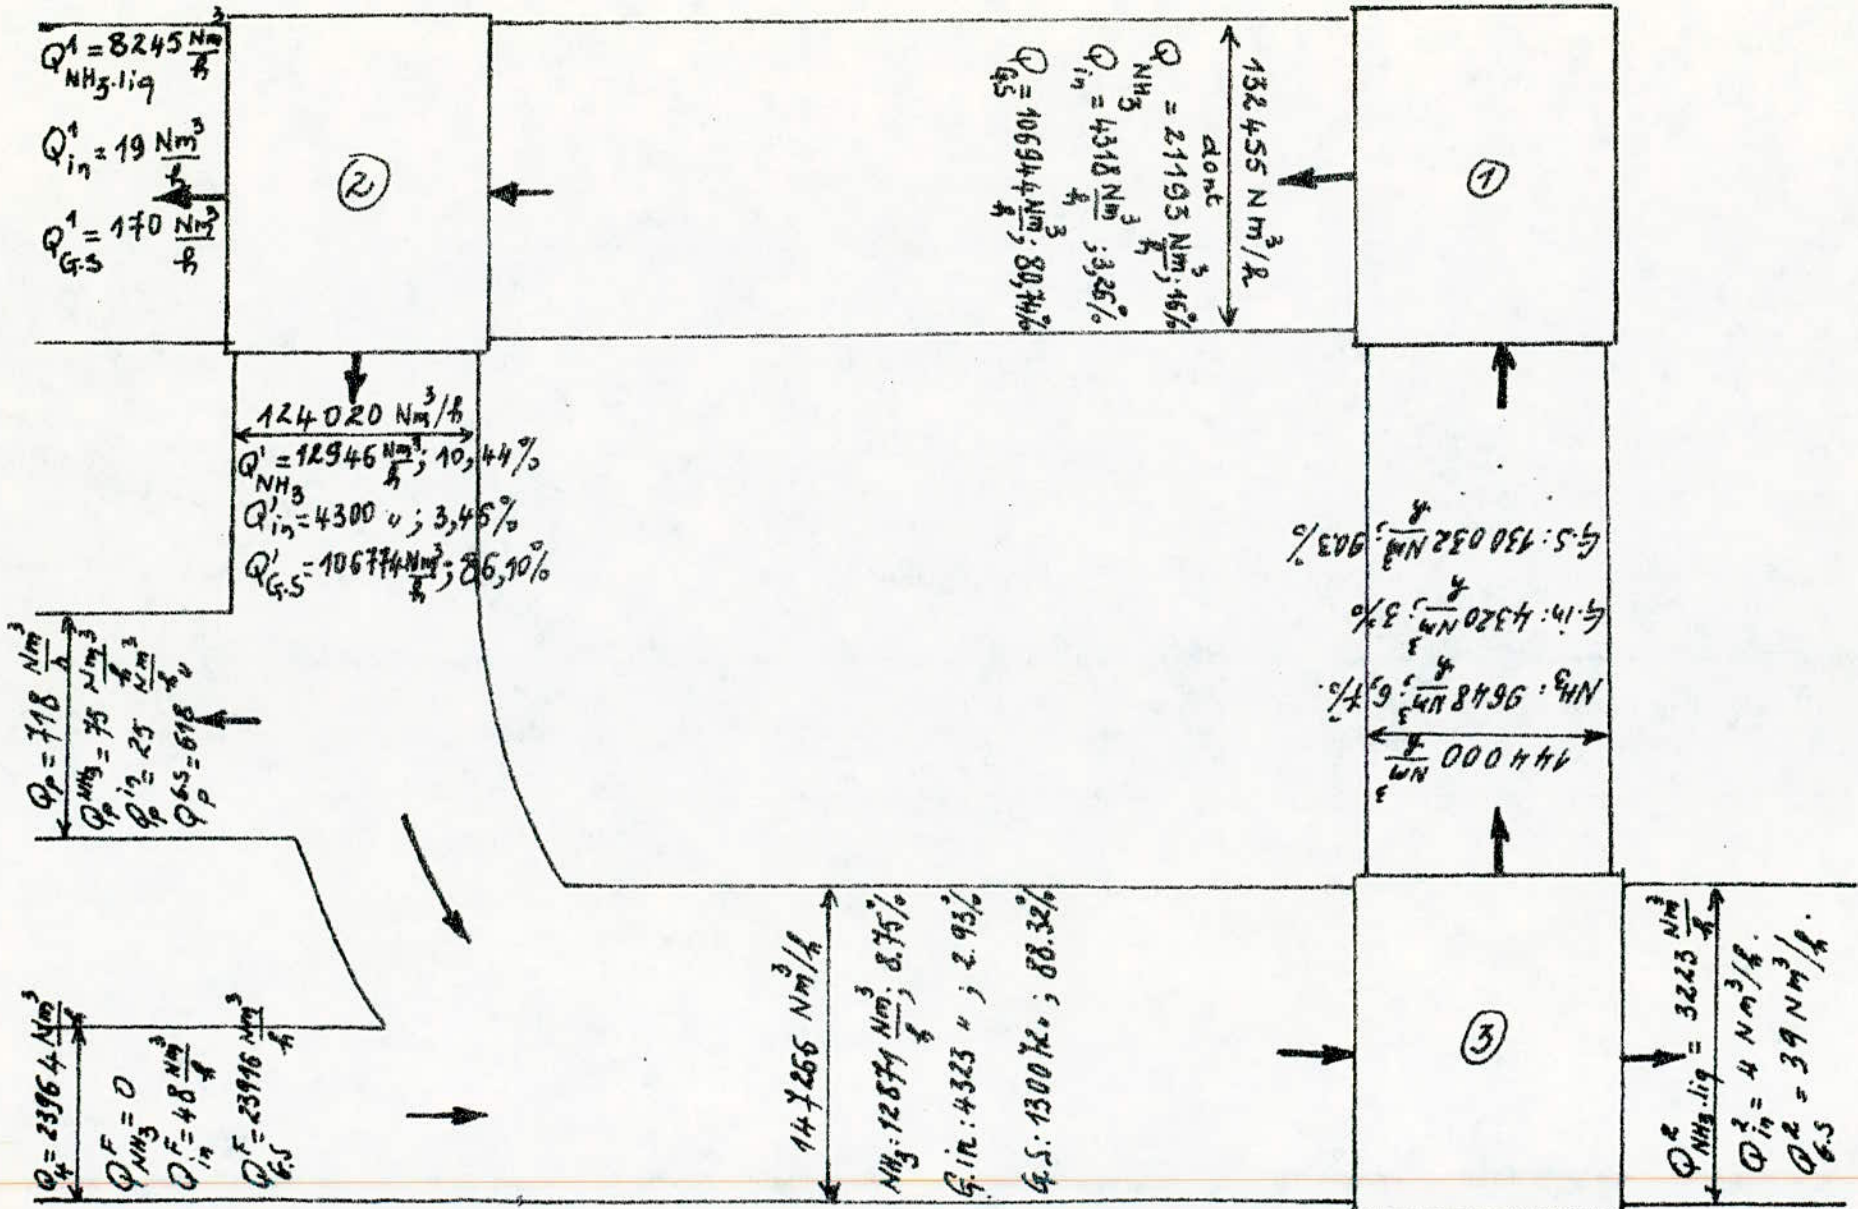 Q¹ NH₃.liq = 8245 Nm³/h
Q¹ in = 19 Nm³/h
Q¹ G.S = 170 Nm³/h
②
132455 Nm³/h
dont
Q NH₃ = 21193 Nm³/h ; 16%
Q in = 4318 Nm³/h ; 3,26%
Q G.S = 106944 Nm³/h ; 80,74%
①
124020 Nm³/h
Q' NH₃ = 12946 Nm³/h ; 10,44%
Q' in = 4300 " ; 3,45%
Q' G.S = 106774 Nm³/h ; 86,10%
Qp = 718 Nm³/h
Qp NH₃ = 75 Nm³/h
Qp in = 25 Nm³/h
Qp G.S = 618 "
144000 Nm³/h
NH₃ : 9648 Nm³/h ; 6,7%.
G.in : 4320 Nm³/h ; 3%
G.S : 130032 Nm³/h ; 90.3%
Q⁴ = 23964 Nm³/h
Q^F NH₃ = 0
Q^F in = 48 Nm³/h
Q^F G.S = 23916 Nm³/h
147266 Nm³/h
NH₃ : 12871 Nm³/h ; 8.75%
G.in : 4323 " ; 2.93%
G.S : 130072 " ; 88.32%
③
Q² NH₃.liq = 3223 Nm³/h
Q² in = 4 Nm³/h.
Q² G.S = 39 Nm³/h.